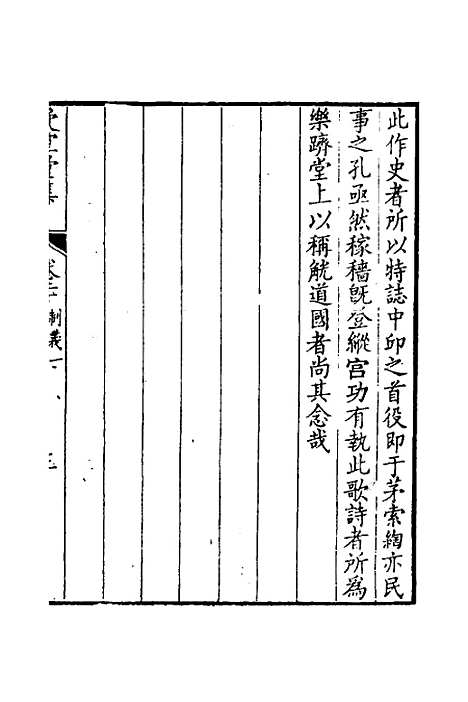 此作史者所以特誌中卬之首役即于茅索綯亦民
事之孔亟然稼穡既登縱宮功有執此歌詩者所為
樂躋堂上以稱觥道國者尚其念哉
堂集
制義一